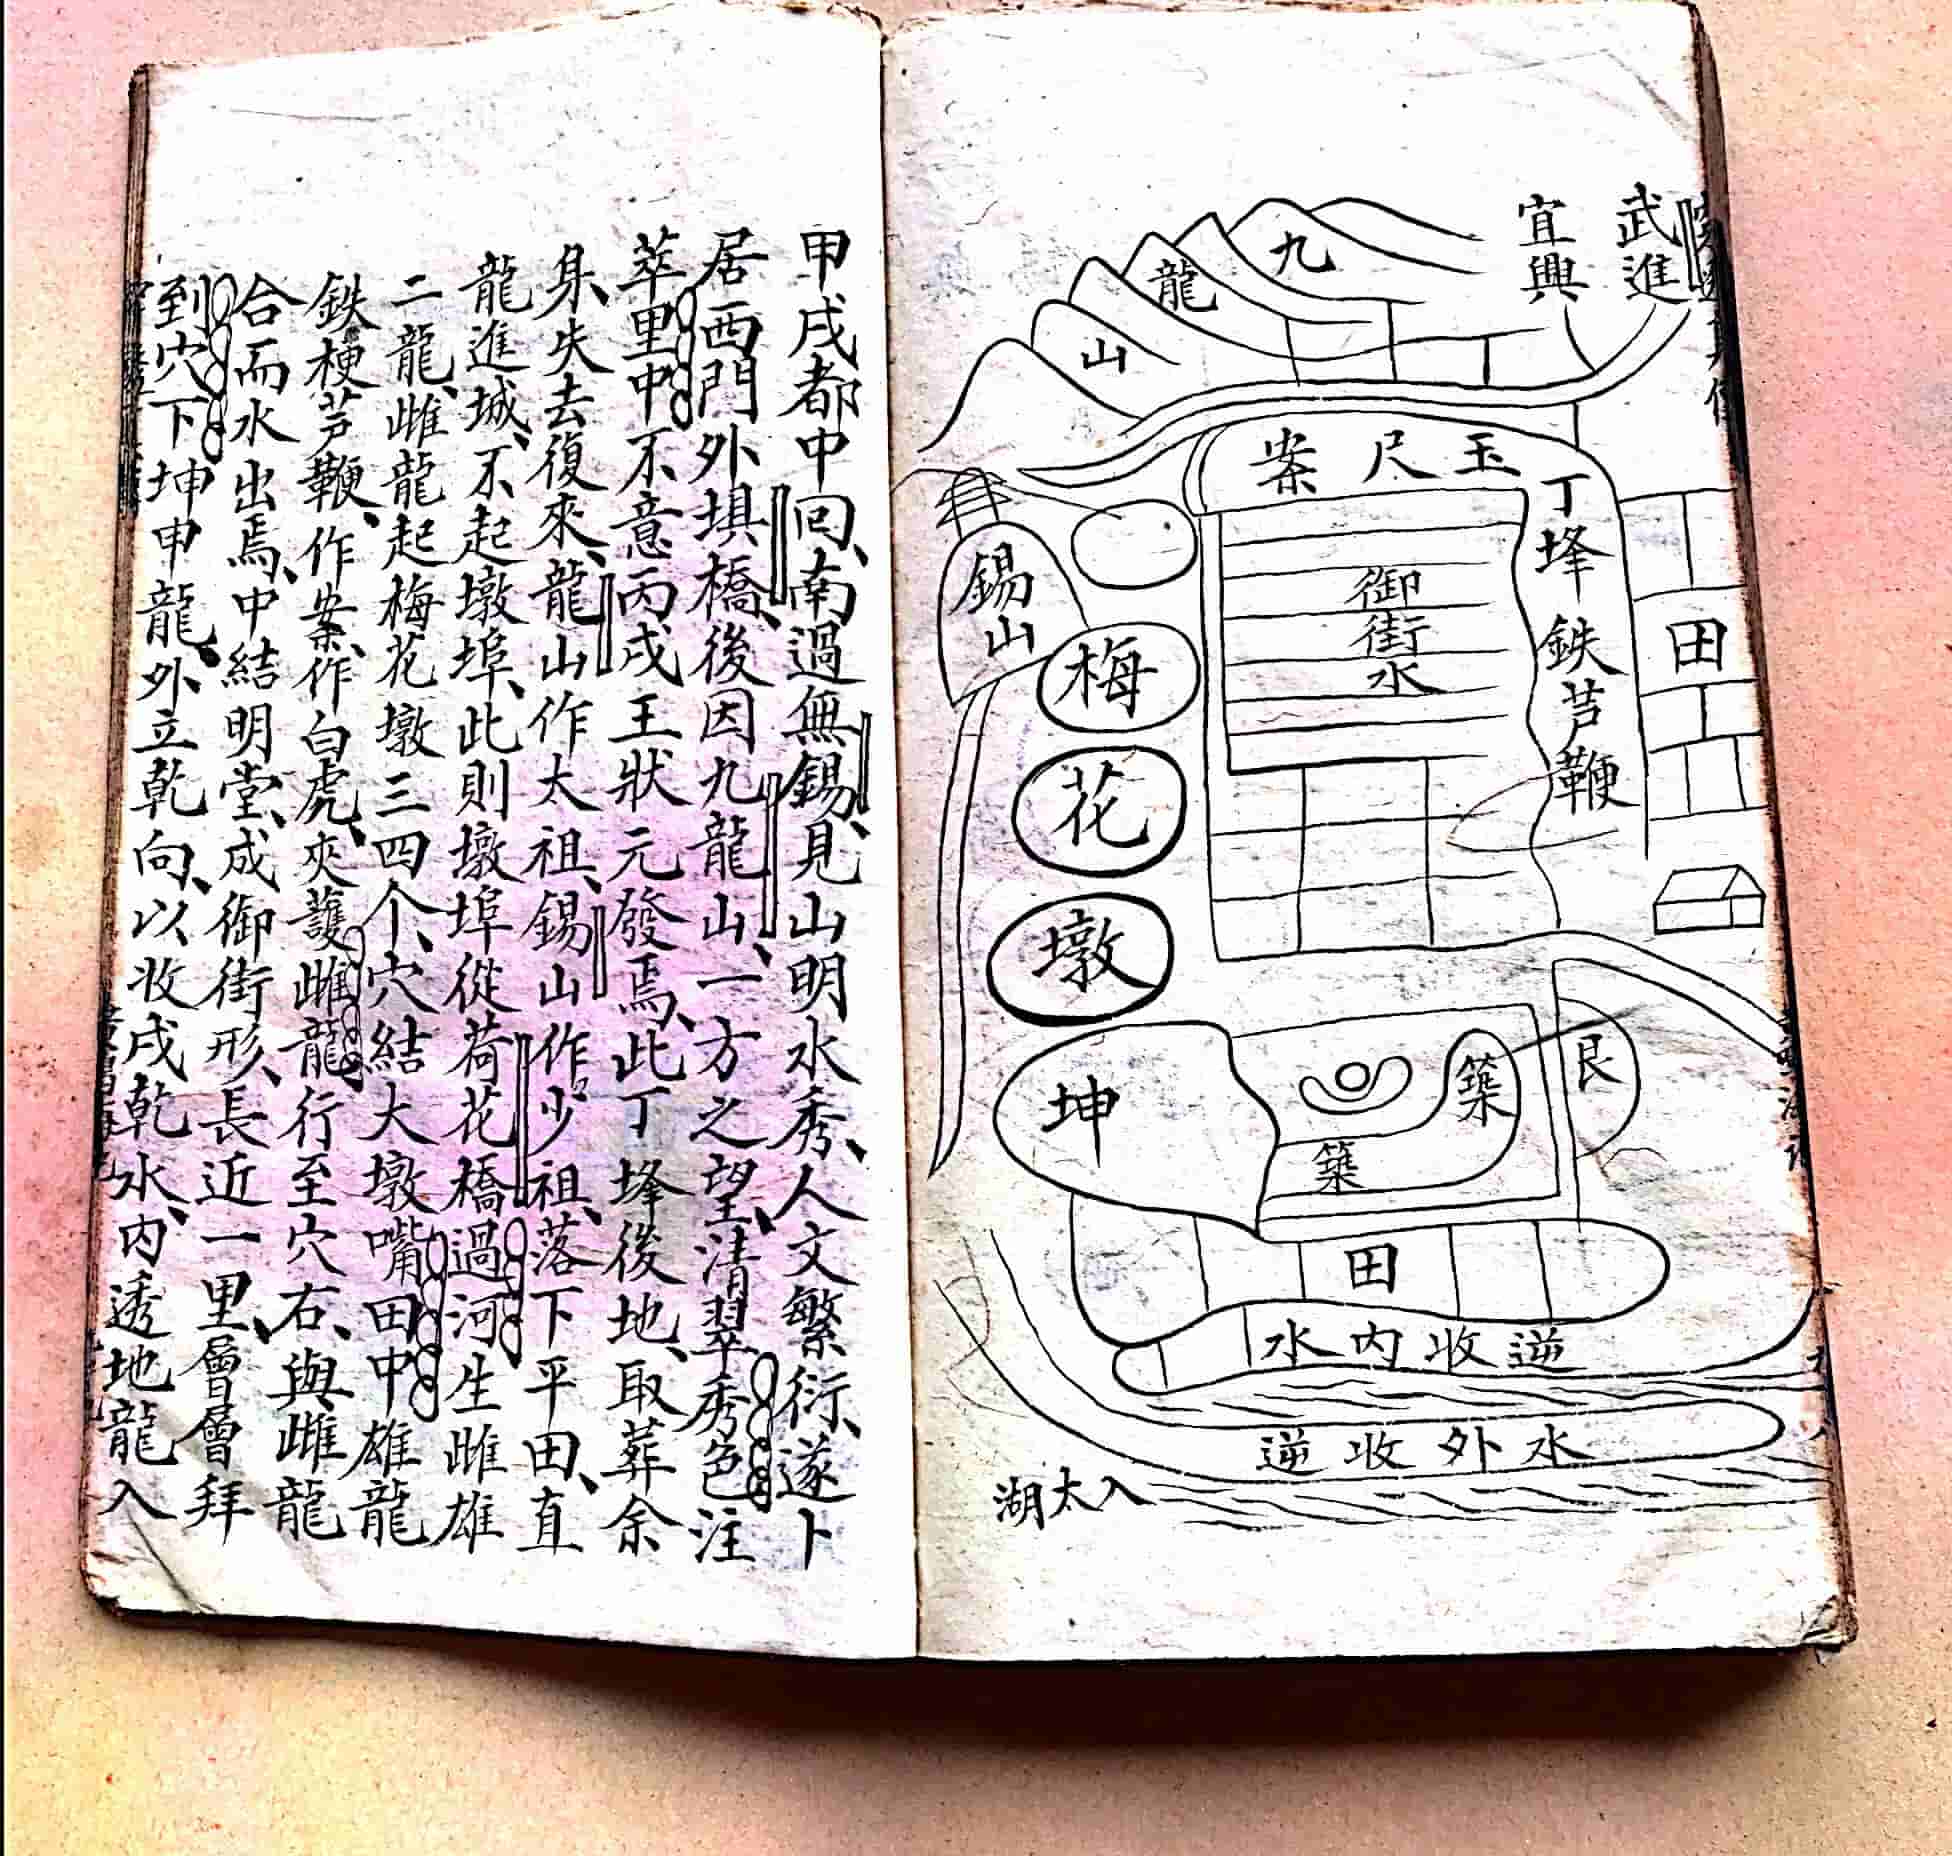 武進
宜興
九
龍
山
玉尺案
丁埄
鉄芦鞭
田
御街水
錫山
梅
花
墩
坤
艮
築
築
田
逆收內水
逆收外水
入太湖
甲戌都中回、南過無錫、見山明水秀、人文繁衍、遂卜
居西門外塤橋、後因九龍山、一方之望、清翠秀色注
萃里中不意丙戌王狀元發焉、此丁埄後地、取葬余
身、失去復來、龍山作太祖、錫山作少祖、落下平田、直
龍進城、不起墩埠、此則墩埠從荷花橋過河生雌雄
二龍、雌龍起梅花墩三四个、穴結大墩嘴田中雄龍
鉄梗芦鞭、作案、作白虎、夾護雌龍行至穴右、與雌龍
合而水出焉、中結明堂、成御街形、長近一里、層層拜
到穴下坤申龍、外立乾向、以收戌乾水、內透地龍入